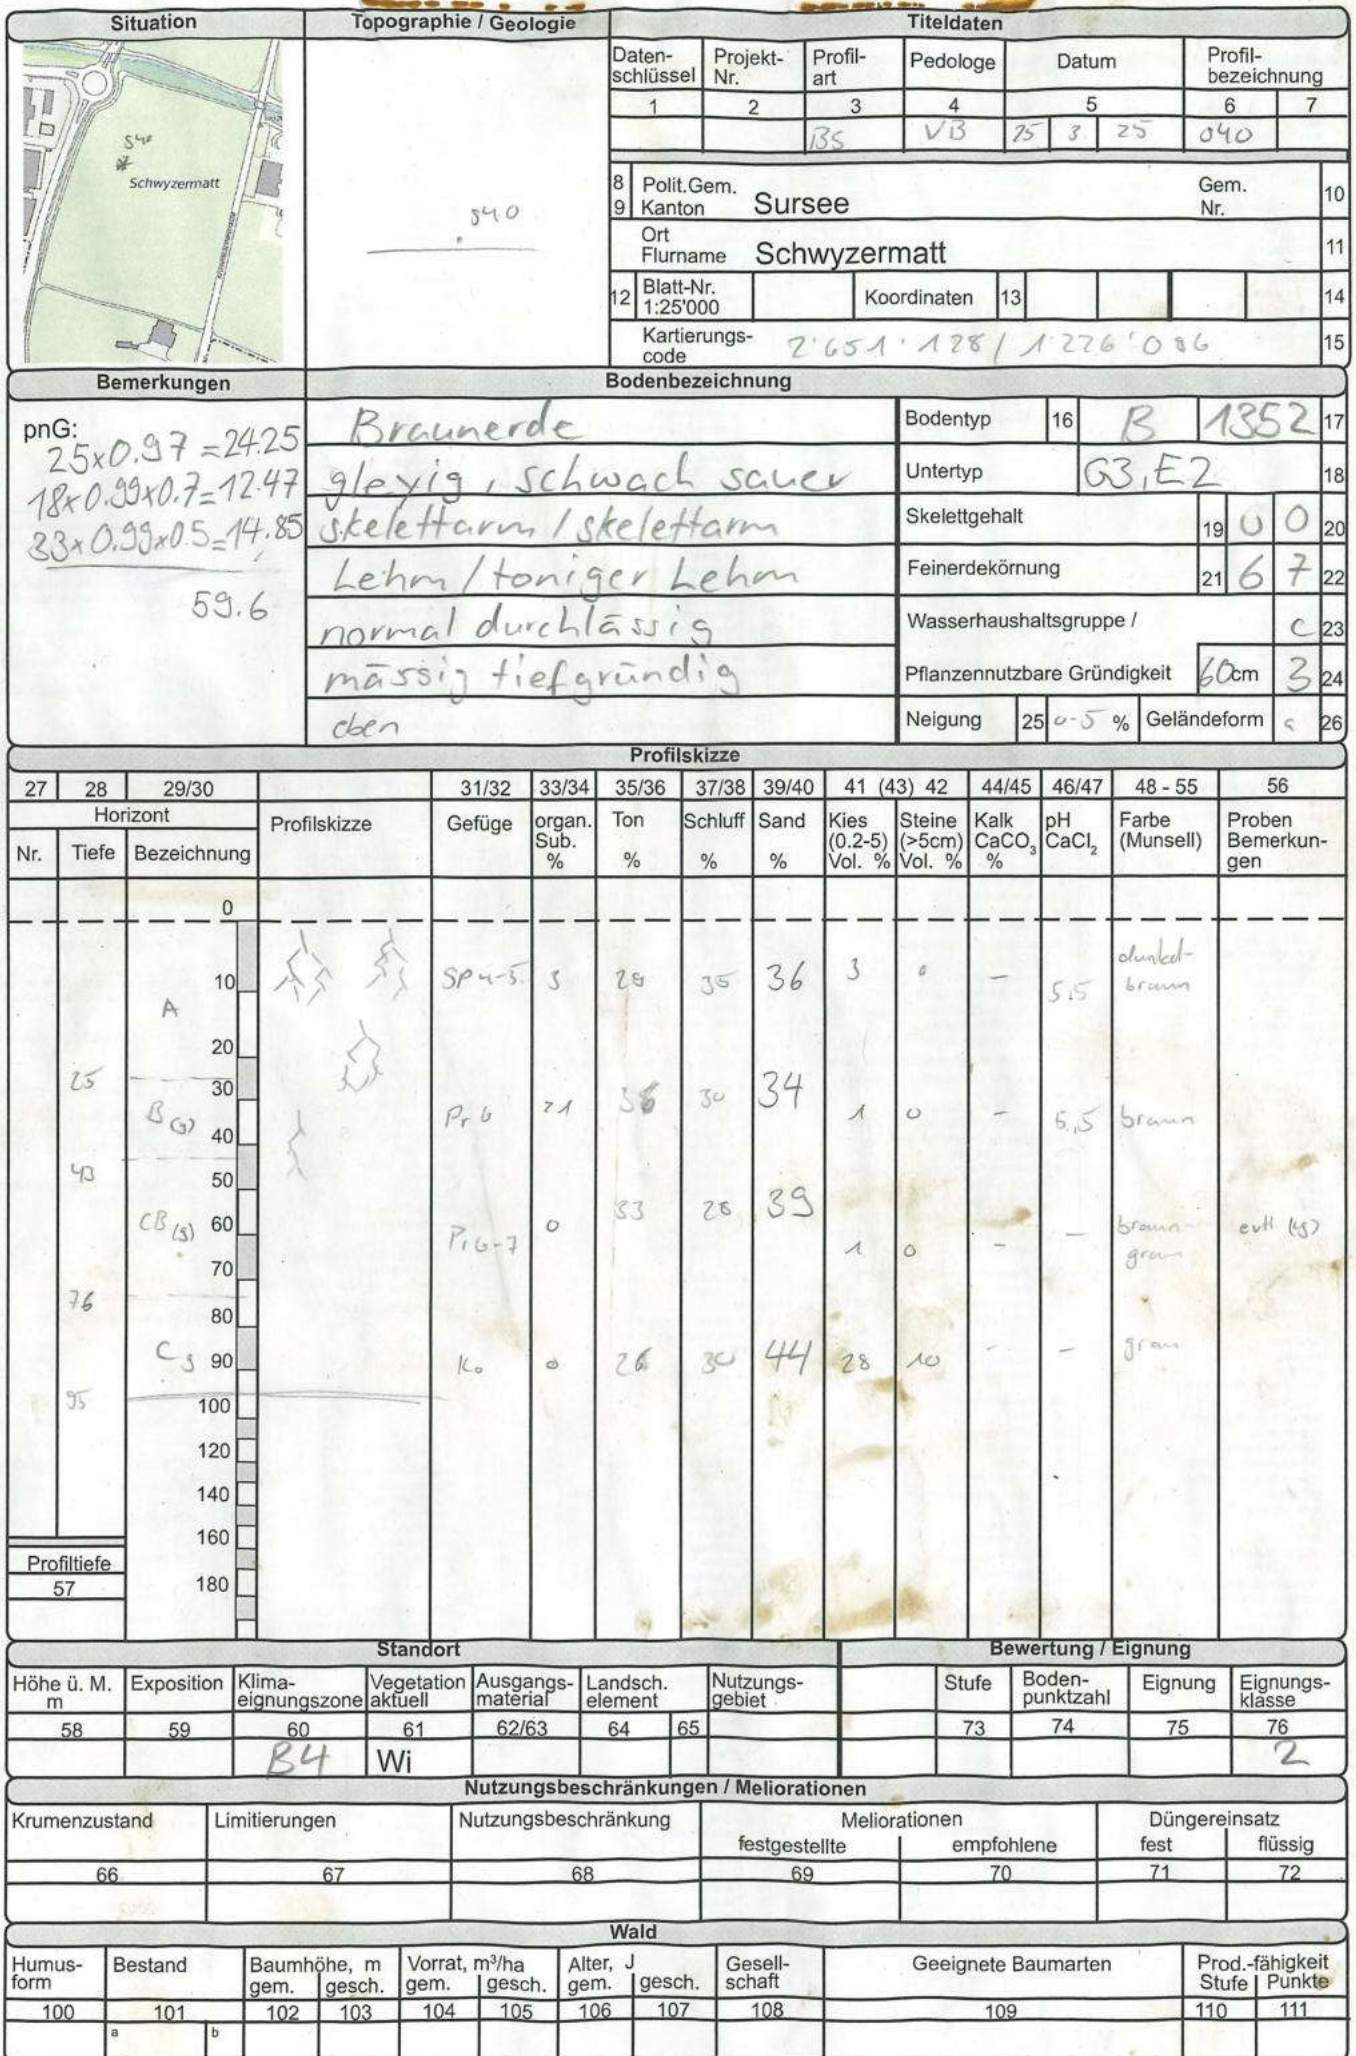 Situation
Topographie / Geologie
Titeldaten
Daten-schlüssel Projekt-Nr. Profil-art Pedologe Datum Profil-bezeichnung
1 2 3 4 5 6 7
BS VB 25 3 25 040
S40
Schwyzermatt
S40
8 Polit.Gem. Gem. 10
9 Kanton Sursee Nr.
Ort
Flurname Schwyzermatt 11
12 Blatt-Nr. 1:25'000 Koordinaten 13 14
Kartierungs-code 2'651'128 / 1'226'086 15
Bemerkungen
Bodenbezeichnung
pnG:
25x0.97=24.25
18x0.99x0.7=12.47
33x0.99x0.5=14.85
59.6
Braunerde
gleyig, schwach sauer
skelettarm / skelettarm
Lehm / toniger Lehm
normal durchlässig
mässig tiefgründig
eben
Bodentyp 16 B 1352 17
Untertyp G3, E2 18
Skelettgehalt 19 0 0 20
Feinerdekörnung 21 6 7 22
Wasserhaushaltsgruppe / c 23
Pflanzennutzbare Gründigkeit 60cm 3 24
Neigung 25 0-5 % Geländeform a 26
Profilskizze
27 28 29/30 31/32 33/34 35/36 37/38 39/40 41 (43) 42 44/45 46/47 48 - 55 56
Horizont
Nr. Tiefe Bezeichnung Profilskizze Gefüge organ. Sub. % Ton % Schluff % Sand % Kies (0.2-5) Vol. % Steine (>5cm) Vol. % Kalk CaCO3 % pH CaCl2 Farbe (Munsell) Proben Bemerkun-gen
0
10 A Sp4-5 3 29 35 36 3 0 - 5,5 dunkel-braun
20
25
30
B(g) Pr6 <1 36 30 34 1 0 - 5,5 braun
40
43
50
CB(g) 60 Pr6-7 0 33 28 39 1 0 - - braun grau evtl (cg)
70
76
80
Cg 90 Ko 0 26 30 44 28 10 - - grau
95
100
120
140
160
180
Profiltiefe
57
Standort
Bewertung / Eignung
Höhe ü. M. m Exposition Klima-eignungszone Vegetation aktuell Ausgangs-material Landsch. element Nutzungs-gebiet Stufe Boden-punktzahl Eignung Eignungs-klasse
58 59 60 61 62/63 64 65 73 74 75 76
B4 Wi 2
Nutzungsbeschränkungen / Meliorationen
Krumenzustand Limitierungen Nutzungsbeschränkung Meliorationen Düngereinsatz
festgestellte empfohlene fest flüssig
66 67 68 69 70 71 72
Wald
Humus-form Bestand Baumhöhe, m Vorrat, m³/ha Alter, J Gesell-schaft Geeignete Baumarten Prod.-fähigkeit
gem. gesch. gem. gesch. gem. gesch. Stufe Punkte
100 101 102 103 104 105 106 107 108 109 110 111
a b